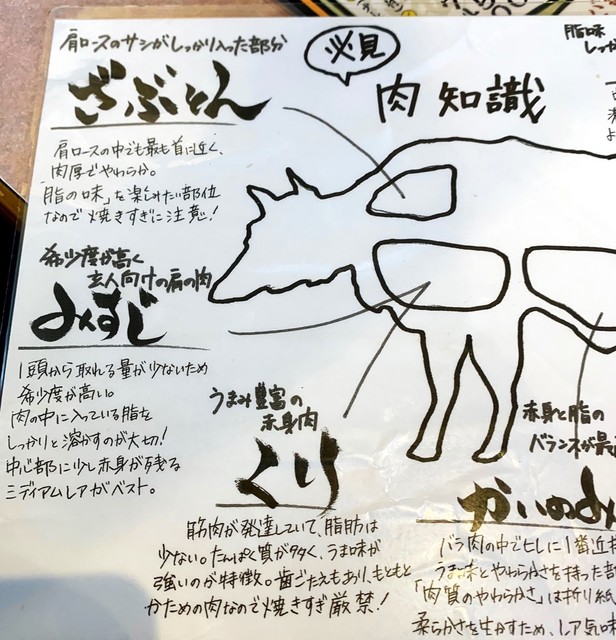 必見
肉知識
肩ロースのサシがしっかり入った部分
ざぶとん
肩ロースの中でも最も首に近く、
肉厚でやわらか。
「脂の味」を楽しみたい部位
なので焼きすぎに注意!
希少度が高く
玄人向けの肩の肉
みすじ
1頭から取れる量が少ないため
希少度が高い。
肉の中に入っている脂を
しっかりと溶かすのが大切!
中心部に少し赤身が残る
ミディアムレアがベスト。
うまみ豊富の
赤身肉
くり
筋肉が発達していて、脂肪は
少ない。たんぱく質が多く、うま味が
強いのが特徴。歯ごたえもあり、もともと
かための肉なので焼きすぎ厳禁!
赤身と脂の
バランスが最
かいのみ
バラ肉の中でヒレに1番近
うま味とやわらかさを持った部
「肉質のやわらかさ」は折り紙
柔らかさを生かすため、レア気味
脂味
しっか